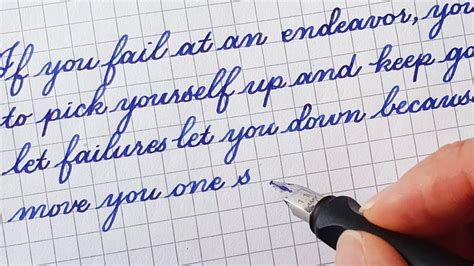 If you fail at an endeavor, you
to pick yourself up and keep go
let failures let you down becaus
move you one s